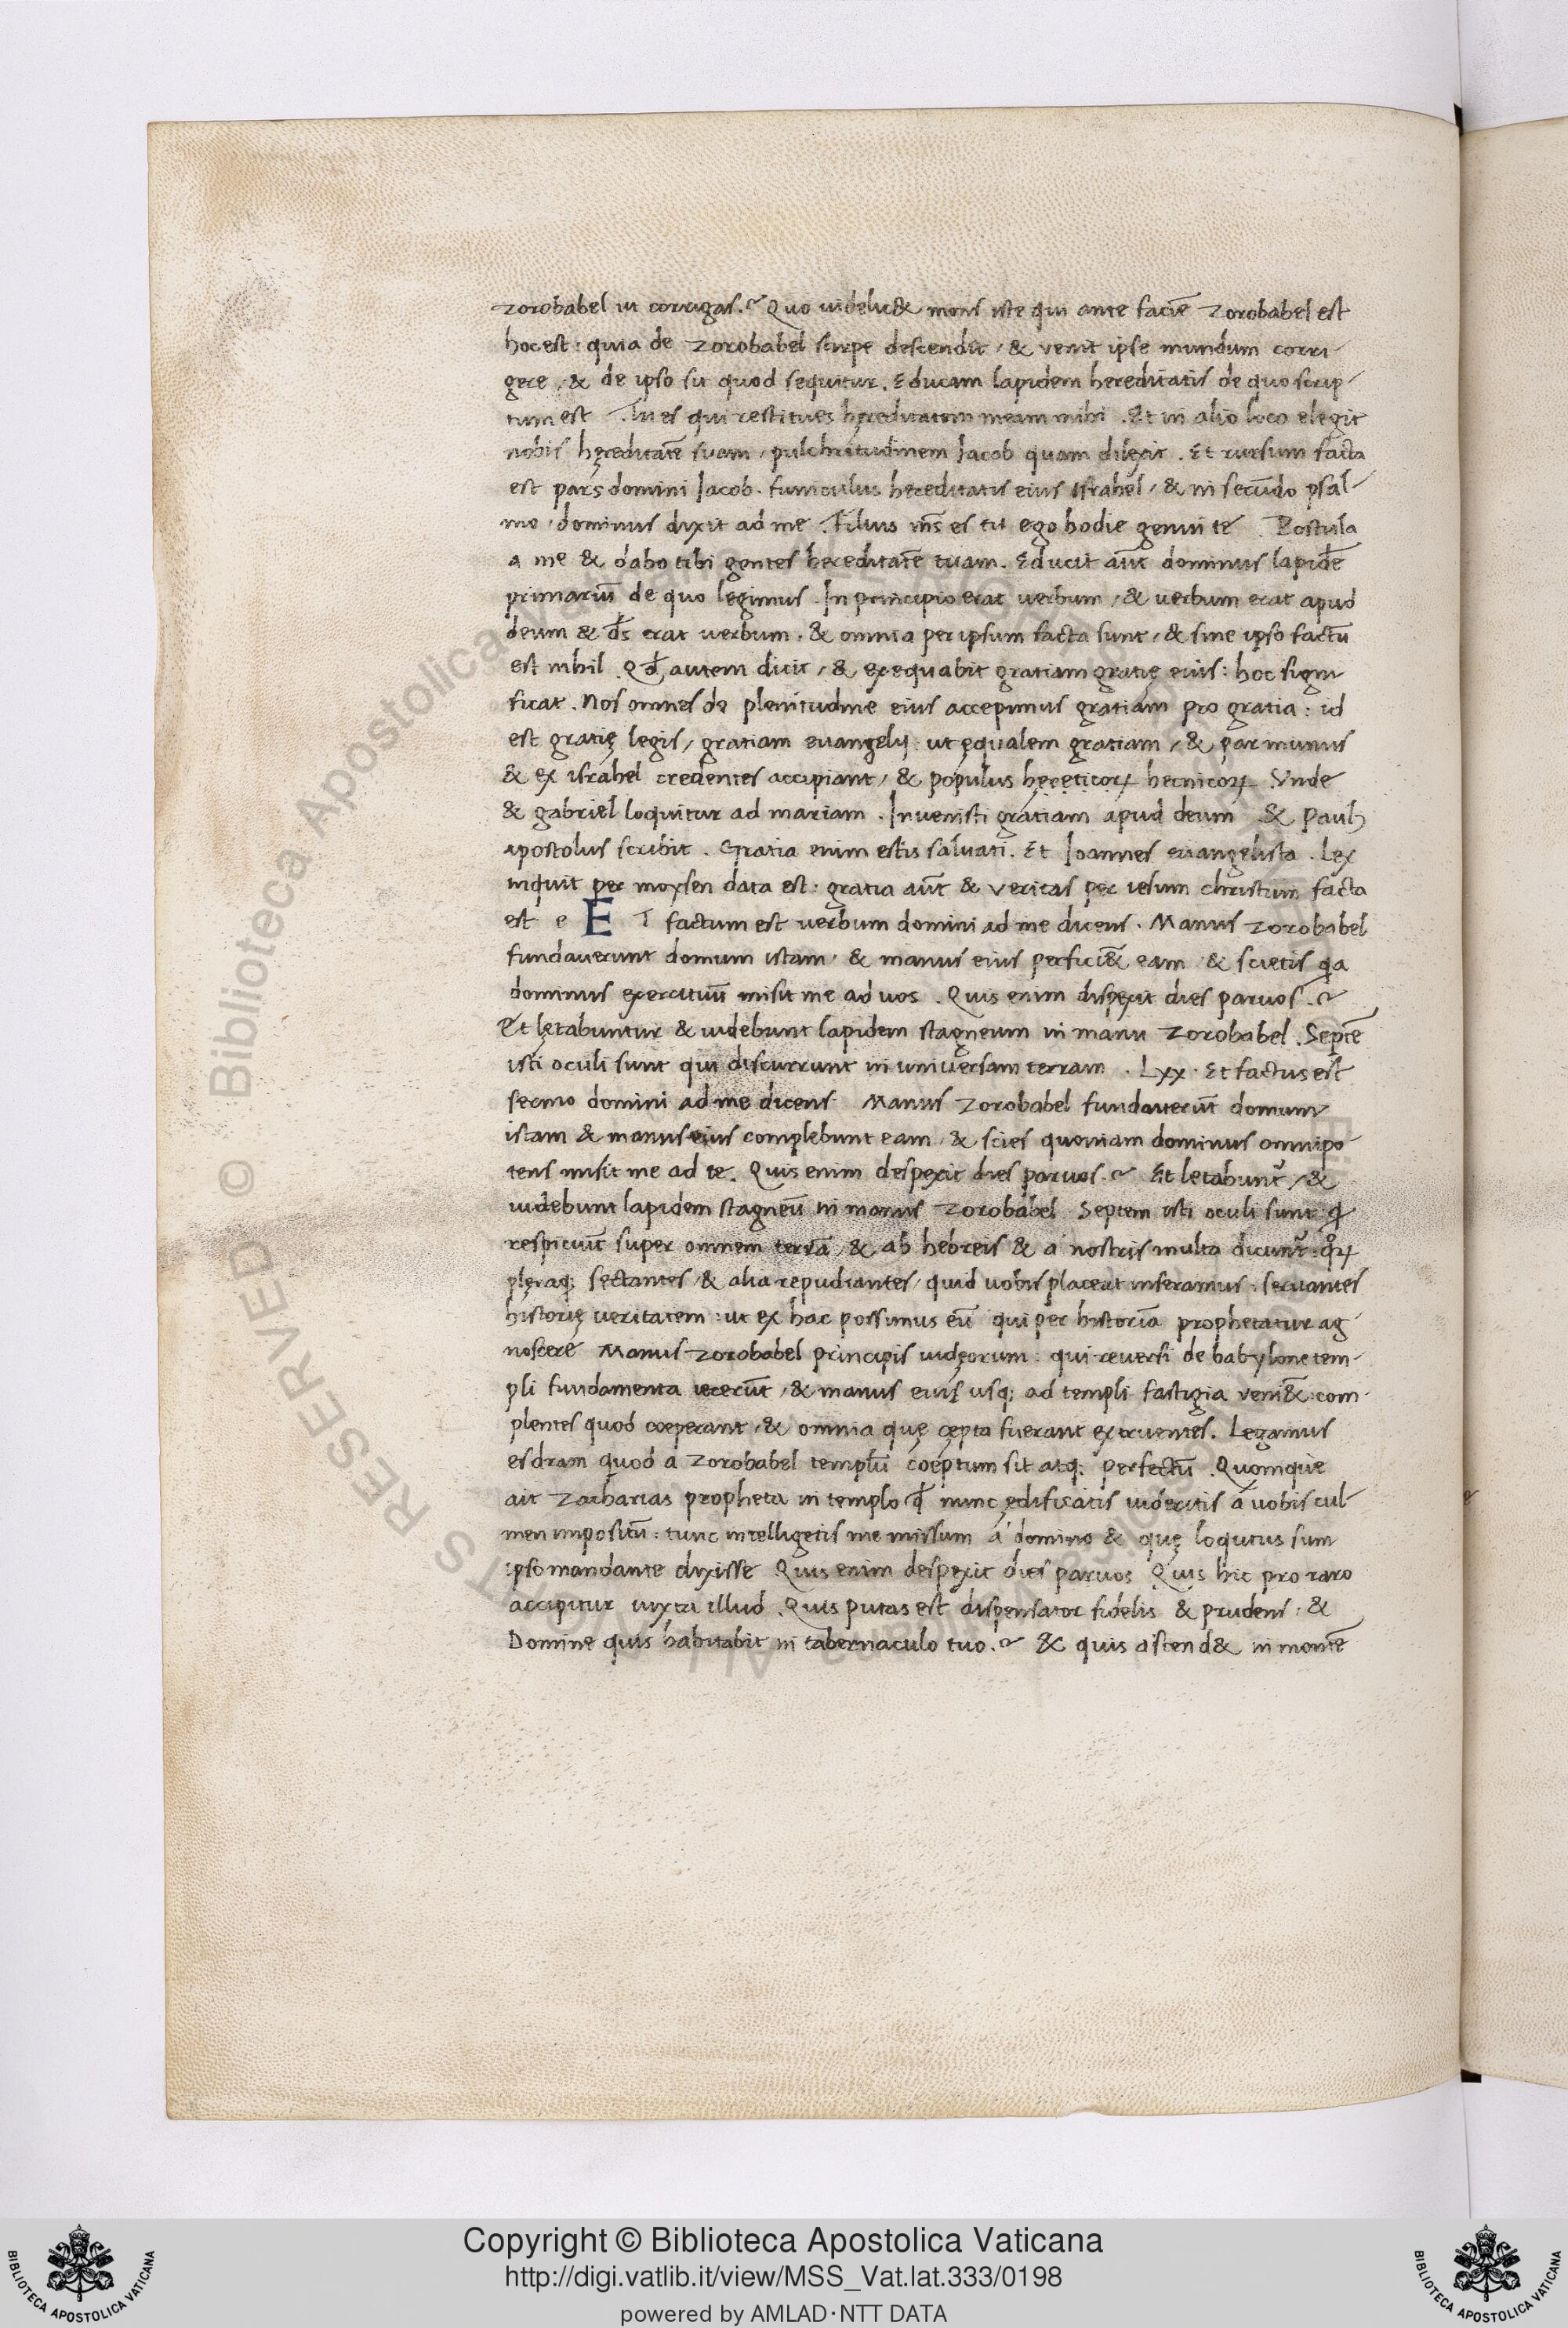 zorobabel ut corrigas.? Quo videlic& mons iste qui ante faciē zorobabel est
hoc est: quia de zorobabel stirpe descendit, & venit ipse mundum corri-
gere, & de ipso sit quod sequitur. Educam lapidem hereditatis de quo scrip-
tum est. Tu es qui restitues hereditatem meam mihi. Et in alio loco elegit
nobis hęreditatē suam, pulchritudinem Iacob quam dilexit. Et rursum facta
est pars domini Iacob. funiculus hereditatis eius Israhel, & in secūdo psal-
mo, dominus dixit ad me. Filius m̄s es tu ego hodie genui te. Postula
a me & dabo tibi gentes hereditatē tuam. Educit aūt dominus lapidē
primariū de quo legimus. In principio erat verbum, & verbum erat apud
deum & d̄s erat verbum. & omnia per ipsum facta sunt, & sine ipso factū
est nihil. Qđ autem dicit, & exequabit gratiam gratię eius: hoc signi-
ficat. Nos omnes de plenitudine eius accepimus gratiam pro gratia: id
est gratię legis, gratiam euangelij: ut ęqualem gratiam, & par munus
& ex israhel credentes accipiant, & populus hereticoꝝ hetnicoꝝ. Unde
& gabriel loquitur ad mariam. Invenisti gratiam apud deum. & Paulꝫ
apostolus scribit. Gratia enim estis salvati. Et Ioannes euangelista. Lex
inquit per moysen data est: gratia aūt & veritas per iesum christum facta
est e E T factum est verbum domini ad me dicens. Manus zorobabel
fundaverunt domum istam, & manus eius perfici&̄ eam, & scietis qa
dominus exercituū misit me ad vos. Quis enim dispexit dies parvos.?
Et lętabuntur & videbunt lapidem stagneum in manu zorobabel. Septē
isti oculi sunt qui discurrunt in universam terram. Lxx. Et factus est
sermo domini ad me dicens Manus zorobabel fundaverūt domum
istam & manus eius complebunt eam, & scies quoniam dominus omnipo-
tens misit me ad te. Quis enim despexit dies parvos.? Et letabunt᷑, &
videbunt lapidem stagneū in manus zorobabel Septem isti oculi sunt: q
respiciūt super omnem terrā, & ab hebreis & a nostris multa dicunt᷑: qꝝ
plęraq; sectantes, & alia repudiantes, quid vobis placeat inseramus: servantes
historię veritatem: ut ex hac possimus eū qui per historiā prophetatur ag-
noscere Manus zorobabel principis iudęorum: qui reversi de babylone tem-
pli fundamenta iecerūt, & manus eius usq; ad templi fastigia veni&̄: com-
plentes quod coeperant, & omnia quę cępta fuerant extruentes. Legamus
esdram quod a zorobabel templū coeptum sit atq; perfectū. Quomque
ait Zacharias propheta in templo qđ nunc ędificatis videritis a vobis cul-
men impositū: tunc intelligetis me missum a domino & quę loqutus sum
ipso mandante dixisse Quis enim despexit dies parvos Quis hic pro raro
accipitur iuxta illud. Quis putas est dispensator fidelis & prudens: &
Domine quis habitabit in tabernaculo tuo.? & quis ascend& in montē
Copyright © Biblioteca Apostolica Vaticana
http://digi.vatlib.it/view/MSS_Vat.lat.333/0198
powered by AMLAD·NTT DATA